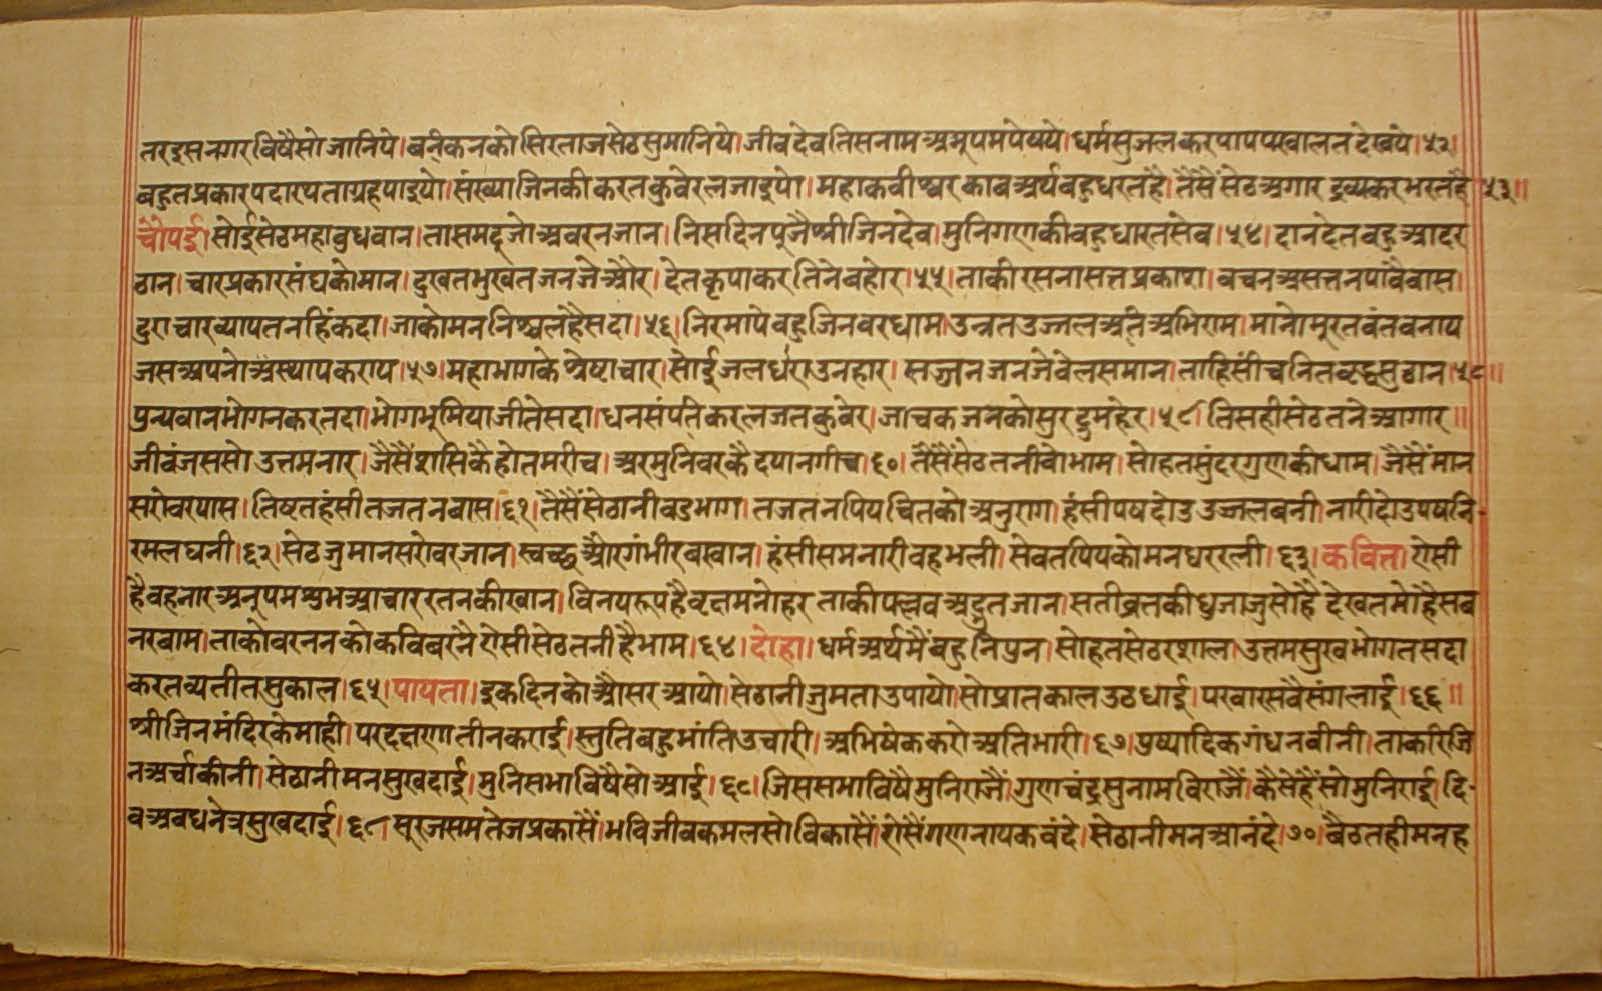 तरइसनगरविषैसो जानिये। बनिकनको सिरताज सेठसुमानिये। जीवदेवतिसनाम अनुपमपेषये। धर्मसुजलकर पापपखालन देखये। ५२।
बहुतप्रकारपदारथताग्रहपाइयो। संख्याजिनकी करतकुवेरलजाइयो। महाकवीश्वर काव अर्थबहुधरतहै। तैसैंसेठअगार द्रव्यकरभरतहै। ५३॥
चौपई। सोईसेठमहाबुधवान। तासमदूजोअवरनजान। निसदिनपूजैश्रीजिनदेव। मुनिगणकीबहुधारतसेव। ५४। दानदेतबहुआदर
ठान। चारप्रकारसंघकोमान। दुखतभुखतजनजेऔर। देतकृपाकरतिनेबहोर। ५५। ताकीरसनासत्तप्रकाश। बचनअसत्तनपावैवास।
दुराचारव्यापतनहिंकदा। जाकोमननिश्चलहैसदा। ५६। निरमापेबहुजिनवरधाम। उन्नतउज्जलअतअभिराम। मानोमूरतवंतबनाय
जसअपनोअस्थापकराय। ५७। महाभागकेश्रेष्टाचार। सोईजलधाराउनहार। सज्जनजनजेवेलसमान। ताहिसींचनितवृद्धसुठान। ५८॥
पुन्यवानभोगनकरतदा। भोगभूमियाजीतेसदा। धनसंपतिकरलजतकुवेर। जाचकजनकोसुरद्रुमहेर। ५९ तिसहीसेठतनेआगार॥
जीवंजससोउत्तमनार। जैसैंशसिकैहोतमरीच। अरमुनिवरकैदयानगीच। ६०। तैसैंसेठतनीवोभाम। सोहतसुंदरगुणकीधाम। जैसैंमान
सरोवरपास। तिष्टतहंसीतजतनवास। ६१। तैसैंसेठानीवडभाग। तजतनपियचितकोअनुराग। हंसीपषदोउउज्जलबनी। नारीदोउपषनि-
रमलघनी। ६२। सेठजुमानसरोवरजान। स्वच्छऔरगंभीरबखान। हंसीसमनारीवहभली। सेवतपियकोमनधररली। ६३। कवित्त। ऐसी
हैवहनारअनूपमशुभआचाररतनकीखान। विनयरूपहैवृत्तमनोहर ताकीपल्लवअद्भुतजान। सतीव्रतकीधुजाजुसोहै देखतमोहैसब
नरवाम। ताकोवरननकोकविबरनै ऐसीसेठतनीहैभाम। ६४। दोहा। धर्मअर्थमैंबहुनिपुन। सोहतसेठरशाल। उत्तमसुखभोगतसदा
करतव्यतीतसुकाल। ६५। पायता। इकदिनकोऔसरआयो। सेठानीजुमताउपायो। सोप्रातकालउठधाई। परवारसवैसंगलाई। ६६॥
श्रीजिनमंदिरकेमाही। परदत्तणातीनकराई। स्तुतिबहुभांतिउचारी। अभिषेककरोअतिभारी। ६७। पुष्पादिकगंधनवीनी। ताकरिजि
नअर्चाकीनी। सेठानीमनसुखदाई। मुनिसभाविषैसोआई। ६८। जिससभाविषैमुनिराजैं। गुणचंद्रसुनामविराजैं। कैसेहैंसोमुनिराई। दि-
वअवधनेत्रसुखदाई। ६९ सूरजसमतेजप्रकासैं। भविजीवकमलसोविकासैं। ऐसैंगणनायकवंदे। सेठानीमनआनंदे। ७०। बैठतहीमनह